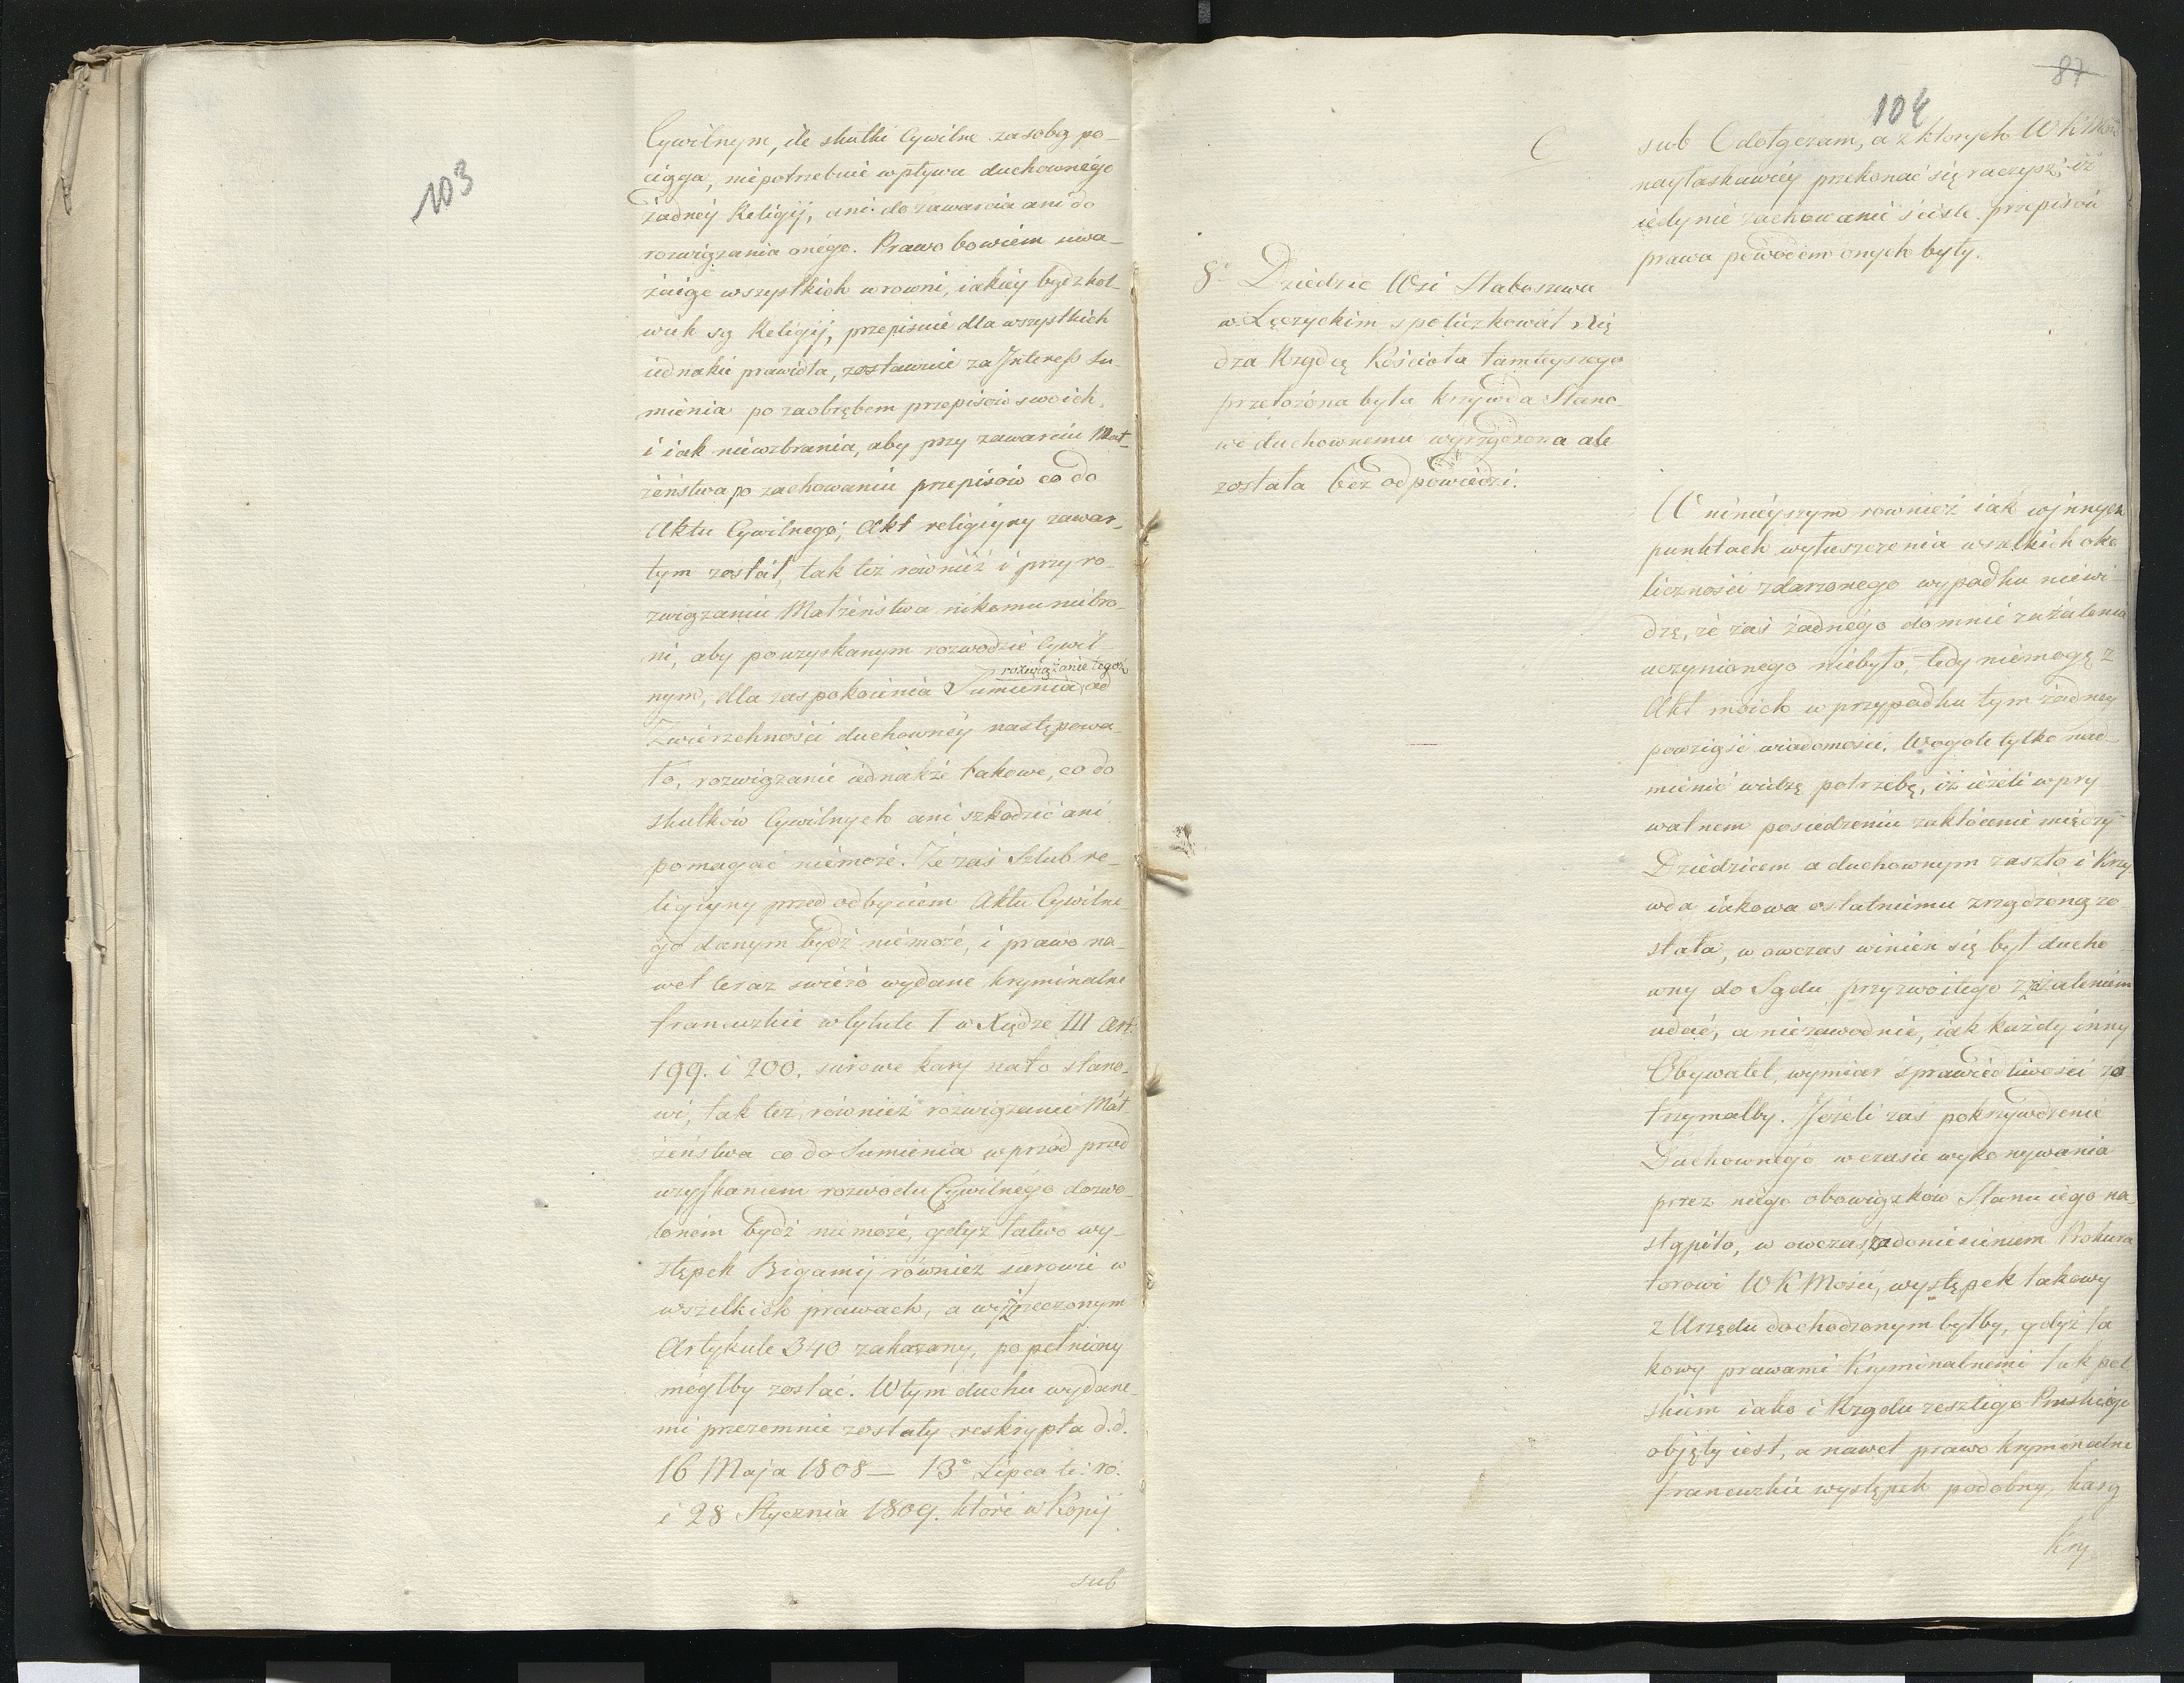 103
Cywilnym, ile skutki Cywilne za sobą po-
ciąga, niepotrzebuie wpływu duchownego
żadnéy Religij, ani do zawarcia ani do
rozwiązania onégo. Prawo bowiém uwa-
żaiąc wszystkich w rowni, iakiéy bądz kol-
wiek są Religij, przepisuie dla wszystkich
iednakie prawidła, zostawuie za Interess Su-
mienia po za obrębem przepisów swoich,
i iak niewzbrania, aby przy zawarciu Mał-
żeństwa po zachowaniu przepisów co do
Aktu Cywilnego, Akt religiyny zawar-
tym został, tak też równiéż i przy ro-
związaniu Małżeństwa nikomu niebro-
ni, aby po uzyskanym rozwodzie Cywil-
rozwiązanie tegoż
nym, dla zaspokoienia Sumienia, od
Zwierzchności duchownéy następowa-
ło, rozwiązanie iednakże takowe, co do
skutków Cywilnych ani szkodzić ani
pomagać niémoże. Ze zaś Szlub re-
ligiyny przed odbyciem Aktu Cywilne-
go danym bydź niémoże, i prawo na-
wet teraz swiéżo wydane kryminalne
francuzkie w tytule I w Xiędze III Art.
199. i 200. surowe kary na to stano-
wi, tak też również rozwiązanie Mał-
żeństwa co do Sumienia wprzód przed
uzyskaniem rozwodu Cywilnégo dozwo-
loném bydź niemoże, gdyż łatwo wy-
stępek Bigamij również surowie w
wszelkich prawach, a w rzeczonym
Artykule 340 zakazany, popełniony
mógłby zostać. W tym duchu wydane-
mi przezemnie zostały reskrypta d.d.
16 Maja 1808 — 13° Lipca te: ro:
i 28 Stycznia 1809. które w Kopij
sub
87
104
C
sub C dołączam, a z ktorych WKMość
nayłaskawiéy przekonać się raczysz, iż
iedynie zachowanie ścisłe przepisów
prawa powodem onych były.
8° Dziedzic Wsi Słaboszewa
w Łęczyckim spoliczkował Xię
dza Rządcę Kościoła tamteyszego
przełożona była krzywda Stano-
wi duchownemu wyrządzona ale
została bez odpowiedzi.
W ninieyszym rownież iak w innych
punktach wyłuszczenia wszelkich oko
liczności zdarzonego wypadku niéwi-
dzę, że zaś żadnégo do mnie zażalenia
uczynionego niebyło, tedy niémogę z
Akt moich w przypadku tym żadney
powziąść wiadomości. Wogole tylko nad-
mienić widzę potrzebę, iż ieżeli w pry
watnem posiedzeniu zakłócenie między
Dziedzicem a duchownym zaszło i Krzy
wda iakowa ostatniemu zrządzoną zo-
stała, wowczas winien się był ducho-
wny do Sądu przyzwoitego z zażaleniem
udać, a niezawodnie, iak każdy inny
Obywatel, wymiar sprawiedliwości zo
trzymałby. Jeżeli zaś pokrzywdzenie
Duchownégo w czasie wykonywania
przez niego obowiązków Stanu iego na-
stąpiło, w owczas za doniesieniem Prokura
torowi WKMości, występek takowy
z Urzędu dochodzonym byłby, gdyż ta
kowy prawami Kryminalnemi tak pol
skiem iako i Rządu zeszłego Pruskiego
objęty iest, a nawet prawo kryminalne
francuzkie występek podobny, karą
Kry